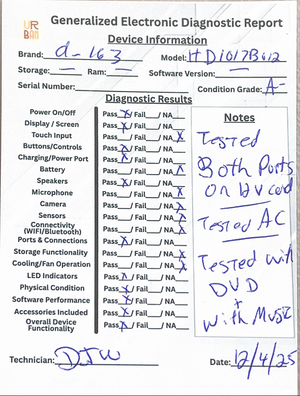 UR
BAN
Generalized Electronic Diagnostic Report
Device Information
Brand: d-163 Model: HD1017B612
Storage: — Ram: — Software Version: —
Serial Number: Condition Grade: A-
Diagnostic Results
Power On/Off Pass X / Fail / NA
Display / Screen Pass X / Fail / NA
Touch Input Pass / Fail / NA X
Buttons/Controls Pass X / Fail / NA
Charging/Power Port Pass X / Fail / NA
Battery Pass / Fail / NA X
Speakers Pass X / Fail / NA
Microphone Pass / Fail / NA X
Camera Pass / Fail / NA X
Sensors Pass / Fail / NA X
Connectivity
(WIFI/Bluetooth) Pass / Fail / NA X
Ports & Connections Pass X / Fail / NA
Storage Functionality Pass / Fail / NA X
Cooling/Fan Operation Pass / Fail / NA X
LED Indicators Pass X / Fail / NA
Physical Condition Pass X / Fail / NA
Software Performance Pass X / Fail / NA
Accessories Included Pass X / Fail / NA
Overall Device
Functionality Pass X / Fail / NA
Notes
Tested
Both Ports
on cord
Tested AC
Tested with
DVD
+
with Music
Technician: DJW Date: 12/4/25